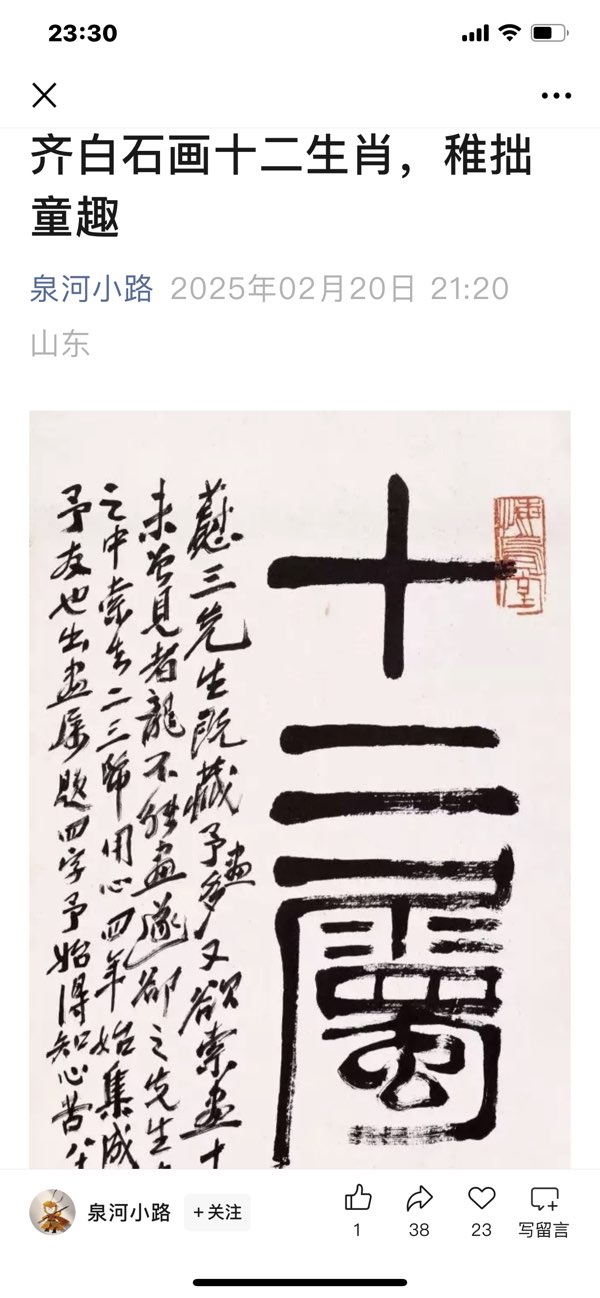 23:30
齐白石画十二生肖，稚拙
童趣
泉河小路 2025年02月20日 21:20
山东
十二屬
三先生既藏予畫多又欲索畫十
未曾見者龍不能畫遂卻之先生
之中索去二三幀用心四年始集成
予友也出畫屬題四字予始得知心苦
泉河小路 +关注 1 38 23 写留言